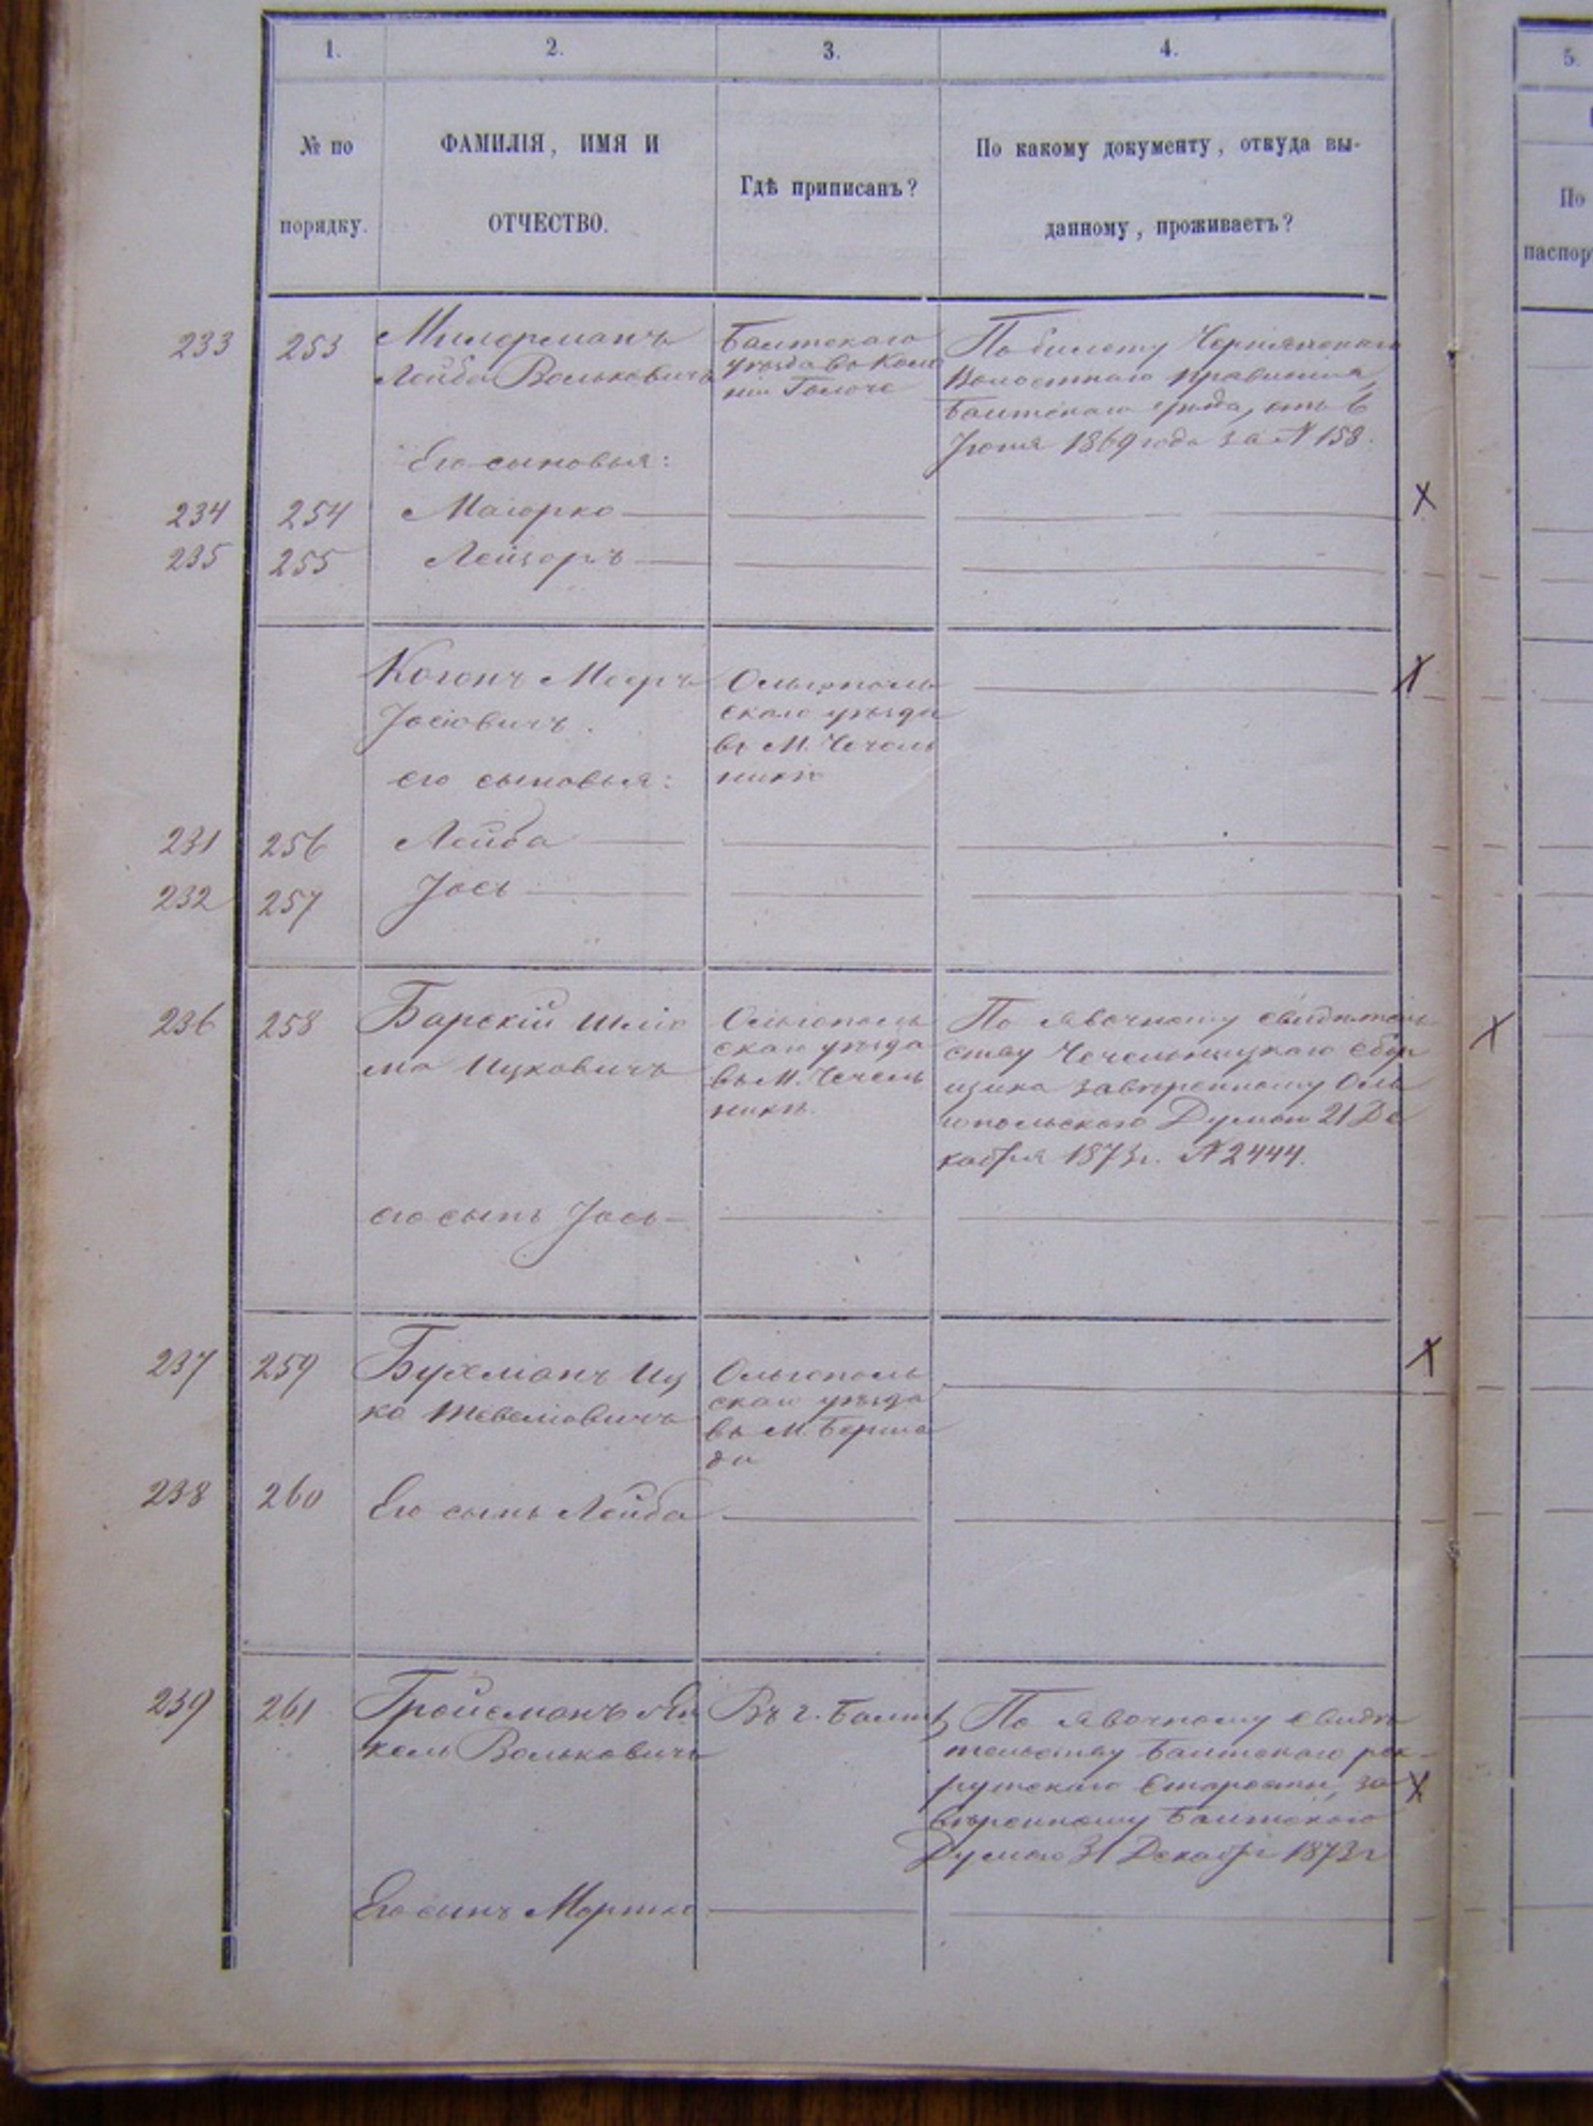 1.
2.
3.
4.
5.
№ по
порядку.
ФАМИЛІЯ, ИМЯ И
ОТЧЕСТВО.
Гдѣ приписанъ?
По какому документу, откуда вы-
данному, проживаетъ?
По
паспор
233 253 Милерманъ
Лейба Вольковичъ
Балтскаго
уѣзда въ Коло
ніи
По билету
Волостнаго Правленія,
Балтскаго уѣзда, отъ 6
Іюня 1869 года за № 158.
Его сыновья:
234 254 Маіорко
235 255 Лейзоръ
Когонъ Мееръ
Іосіовичъ.
Ольгополь
скаго уѣзда
въ М. Чечель
никѣ
его сыновья:
231 256 Лейба
232 257 Іось
236 258 Барскій Шліо
ма Ицковичъ
Ольгополь
скаго уѣзда
въ М. Чечель
никѣ.
По явочному свидѣтель
ству Чечельницкаго сбор
щика завѣренному Оль
гопольскою Думою 21 Де
кабря 1873 г. № 2444.
его сынъ Іось
237 259 Бухманъ Иц
ко Шевелiовичъ
Ольгополь
скаго уѣзда
въ М. Берша
ди
238 260 Его сынъ Лейба
239 261 Гройсманъ Ян
кель Вольковичъ
Въ г. Балтѣ
По явочному свидѣ
тельству Балтскаго рек-
рутскаго Старосты, за
вѣренному Балтскою
Думою 31 Декабря 1873 г
Его сынъ Мортко